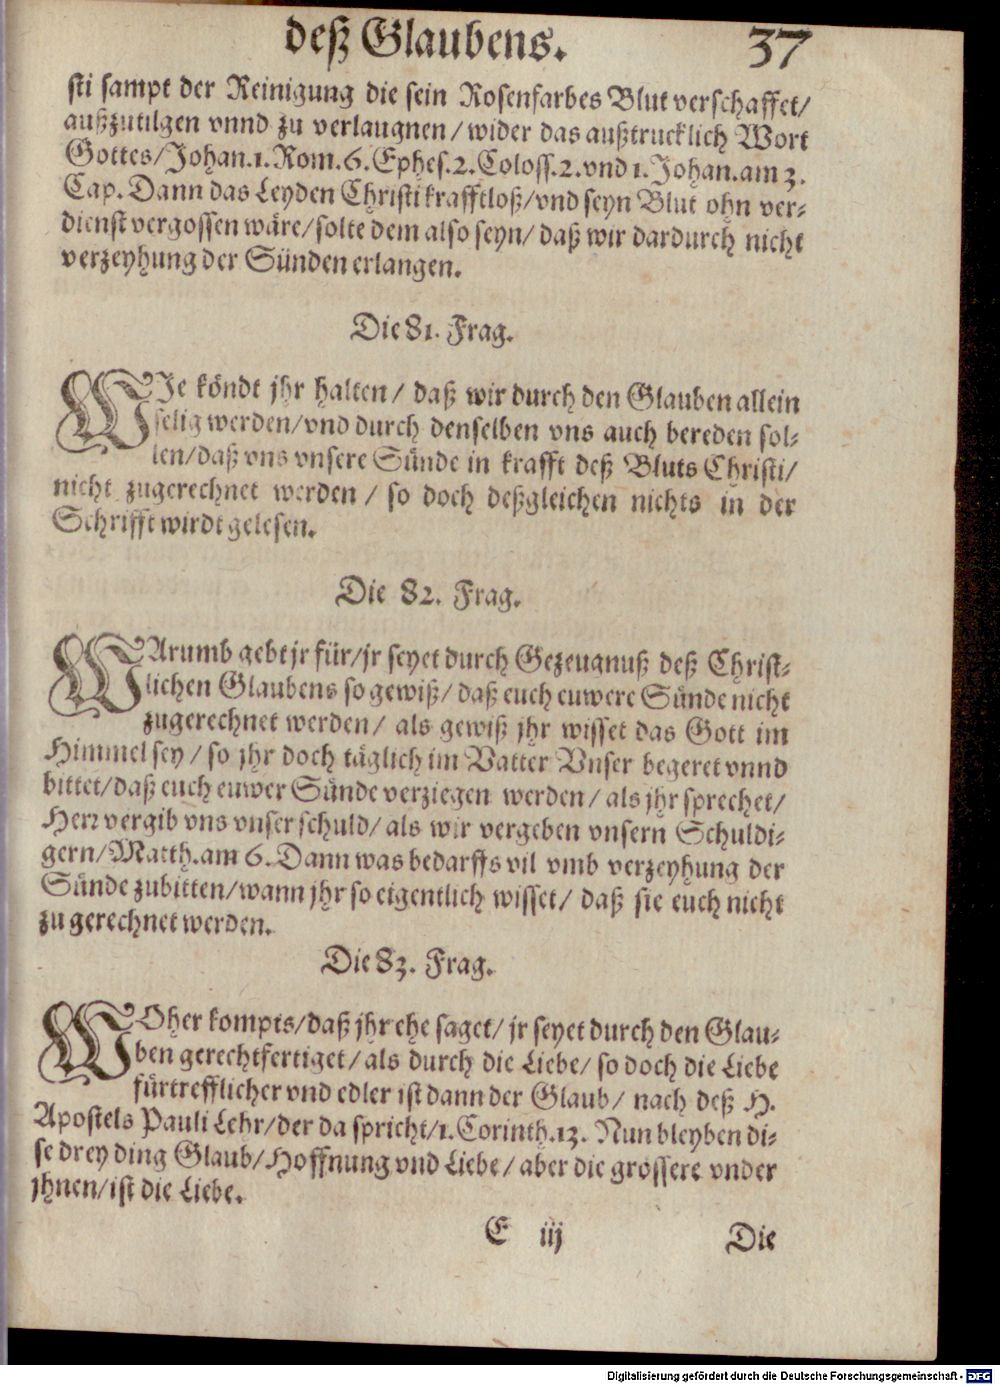 deß Glaubens. 37
sti sampt der Reinigung die sein Rosenfarbes Blut verschaffet/
außzutilgen vnnd zu verlaugnen/ wider das außtrucklich Wort
Gottes/ Johan.1. Rom.6. Ephes.2. Coloss.2. vnd 1. Johan. am 3.
Cap. Dann das Leyden Christi krafftloß/ vnd seyn Blut ohn ver-
dienst vergossen wäre/ solte dem also seyn/ daß wir dardurch nicht
verzeyhung der Sünden erlangen.
Die 81. Frag.
WJe köndt jhr halten/ daß wir durch den Glauben allein
selig werden/ vnd durch denselben vns auch bereden sol-
len/ daß vns vnsere Sünde in krafft deß Bluts Christi/
nicht zugerechnet werden/ so doch deßgleichen nichts in der
Schrifft wirdt gelesen.
Die 82. Frag.
WArumb gebt jr für/ jr seyet durch Gezeugnuß deß Christ-
lichen Glaubens so gewiß/ daß euch euwere Sünde nicht
zugerechnet werden/ als gewiß jhr wisset das Gott im
Himmel sey/ so jhr doch täglich im Vatter Vnser begeret vnnd
bittet/ daß euch euwer Sünde verziegen werden/ als jhr sprechet/
Herr vergib vns vnser schuld/ als wir vergeben vnsern Schuldi-
gern/ Matth. am 6. Dann was bedarffs vil vmb verzeyhung der
Sünde zubitten/ wann jhr so eigentlich wisset/ daß sie euch nicht
zu gerechnet werden.
Die 83. Frag.
WOher kompts/ daß jhr ehe saget/ jr seyet durch den Glau-
ben gerechtfertiget/ als durch die Liebe/ so doch die Liebe
fürtrefflicher vnd edler ist dann der Glaub/ nach deß H.
Apostels Pauli Lehr/ der da spricht/ 1. Corinth.13. Nun bleyben di-
se drey ding Glaub/ Hoffnung vnd Liebe/ aber die grössere vnder
jhnen/ ist die Liebe.
E iij Die
Digitalisierung gefördert durch die Deutsche Forschungsgemeinschaft - DFG